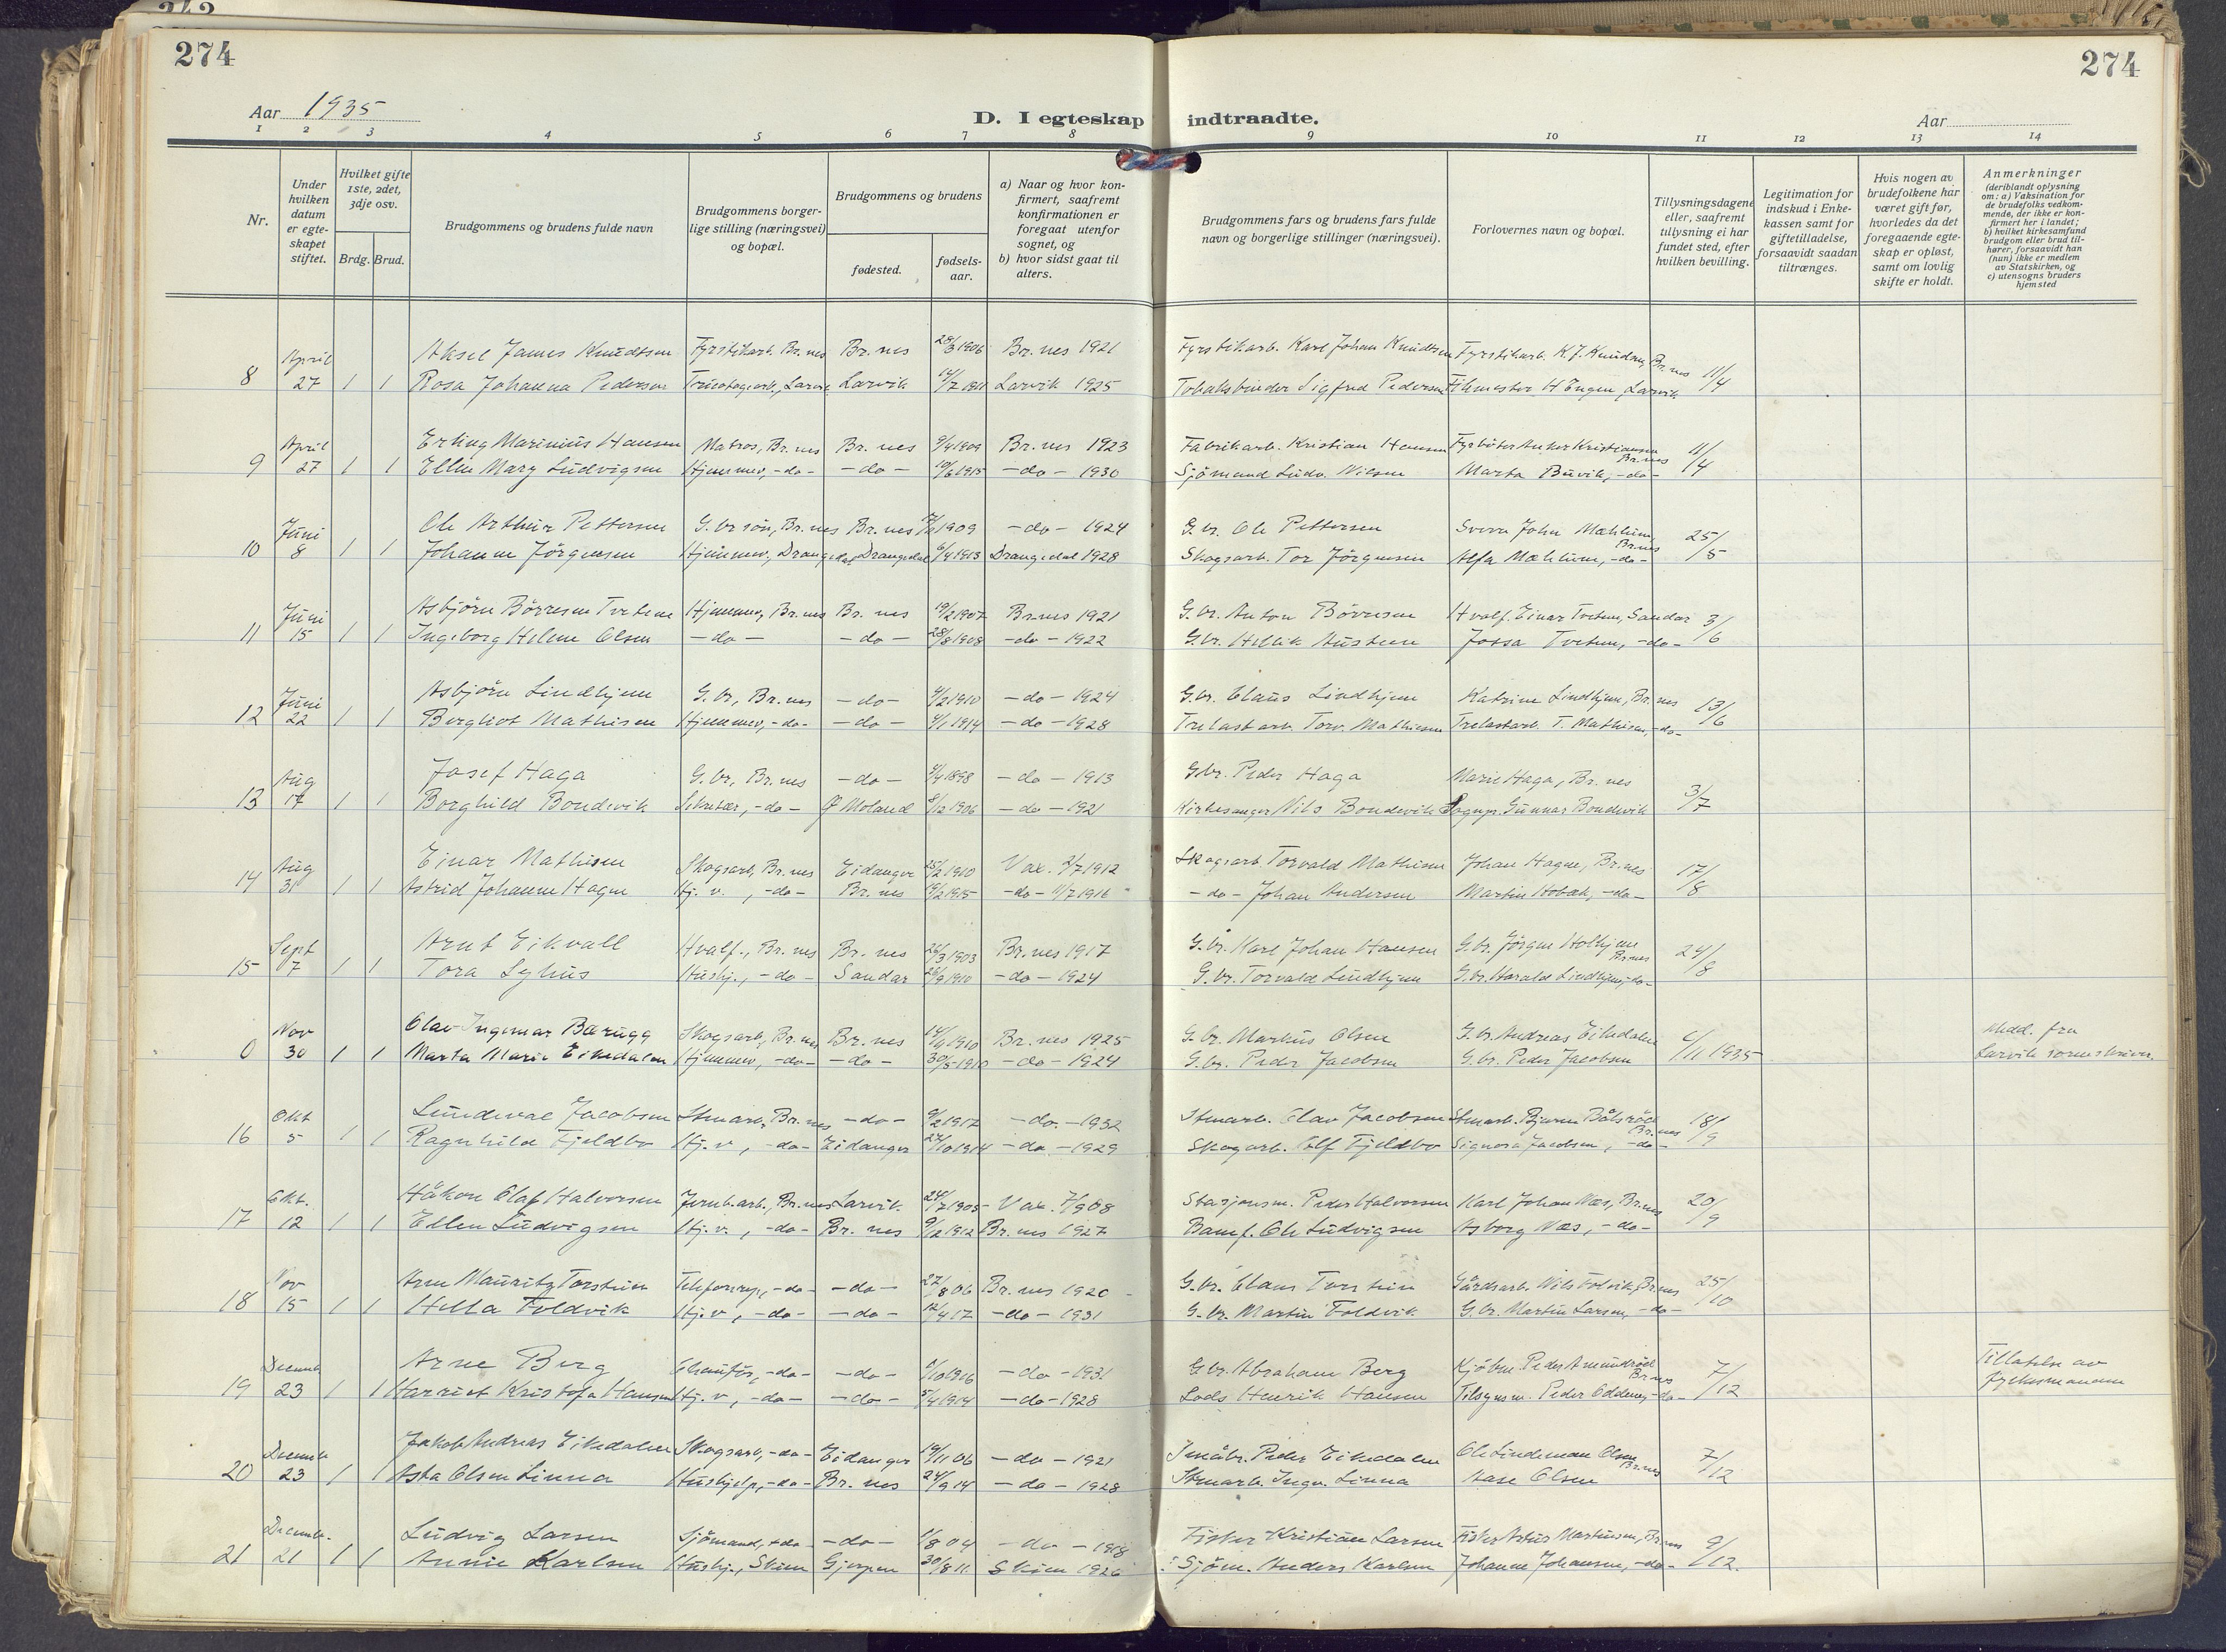 274
274
Aar 1935
D. I egteskap indtraadte.
Aar
1 2 3 4 5 6 7 8 9 10 11 12 13 14
Nr.
Under hvilken datum er egteskapet stiftet.
Hvilket gifte 1ste, 2det, 3dje osv.
Brdg. Brud.
Brudgommens og brudens fulde navn
Brudgommens borgerlige stilling (næringsvei) og bopæl.
Brudgommens og brudens
fødested.
fødselsaar.
a) Naar og hvor konfirmert, saafremt konfirmationen er foregaat utenfor sognet, og
b) hvor sidst gaat til alters.
Brudgommens fars og brudens fars fulde navn og borgerlige stillinger (næringsvei).
Forlovernes navn og bopæl.
Tillysningsdagene eller, saafremt tillysning ei har fundet sted, efter hvilken bevilling.
Legitimation for indskud i Enkekassen samt for giftetilladelse, forsaavidt saadan tiltrænges.
Hvis nogen av brudefolkene har været gift før, hvorledes da det foregaaende egteskap er opløst, samt om lovlig skifte er holdt.
Anmerkninger
(deriblandt oplysning om: a) Vaksination for de brudefolks vedkommende, der ikke er konfirmert her i landet; b) hvilket kirkesamfund brudgom eller brud tilhører, forsaavidt han (hun) ikke er medlem av Statskirken, og c) utensogns bruders hjemsted
April Aksel James Knudtsen Fyrstikarb. Br.nes Br.nes 28/3 1906 Br.nes 1921 Fyrstikarb. Karl Johan Knudtsen Fyrstikarb. K. J. Knudtsen, Br.nes 11/4
8 27 1 1 Rosa Johanna Pedersen Tricotagearb., Larvik Larvik 14/7 1911 Larvik 1925 Tobaksbinder Sigfred Pedersen H Engen, Larvik
April Erling Marinius Hansen Matros, Br.nes Br.nes 9/4 1909 Br.nes 1923 Fabrikarb. Kristian Hansen Fyrbøter Anker Kristiansen Br.nes 11/4
9 27 1 1 Ellen Mary Ludvigsen Hjemmev, -do- -do- 10/6 1915 -do- 1930 Sjömand Ludv. Nilsen Marta Buvik, -do-
Juni Ole Arthur Pettersen G.br søn, Br.nes Br.nes 1909 -do- 1924 G.br. Ole Pettersen Sverre John Mæhlum, Br.nes 25/5
10 8 1 1 Johanne Jörgensen Hjemmev, Drangedal Drangedal 6/4 1913 Drangedal 1928 Skogsarb. Tor Jörgensen Alfa Mæhlum, -do-
Juni Asbjörn Börresen Tvetene Hjemmev, Br.nes Br.nes 19/2 1907 Br.nes 1921 G.br. Anton Börresen Hvalf. Einar Tveten, Sandar 3/6
11 15 1 1 Ingeborg Helene Olsen -do- -do- 28/8 1908 -do- 1922 G.br. Hellik Austeen Jossa Tveten, -do-
Juni Asbjörn Lindhjem G.br, Br.nes -do- 4/2 1910 -do- 1924 G.br. Claus Lindhjem Katrine Lindhjem, Br.nes 13/6
12 22 1 1 Bergliot Mathisen Hjemmev, -do- -do- 4/1 1914 -do- 1928 Trelastarb. Torv. Mathisen Trelastarb. T. Mathisen, -do-
Aug Josef Haga G.br, Br.nes -do- 4/4 1898 -do- 1913 G.br. Peder Haga Marie Haga, Br.nes 3/7
13 17 1 1 Borghild Bondevik Sekretær, -do- Ø Moland 8/12 1906 -do- 1921 Kirkesanger Nils Bondevik Sognepr. Gunnar Bondevik
Aug Einar Mathisen Skogsarb, Br.nes Eidanger 25/2 1910 Vax. 2/7 1912 Skogsarb Torvald Mathisen Johan Hagen, Br.nes 17/8
14 31 1 1 Astrid Johanne Hagen Hj. v., -do- Br.nes 19/2 1915 -do- 11/7 1916 -do- Johan Andersen Martin Hobæk, -do-
Sept Arnt Eikvall Hvalf., Br.nes Br.nes 26/3 1903 Br.nes 1917 G.br. Karl Johan Hansen G.br. Jörgen Holhjem Br.nes 24/8
15 7 1 1 Tora Lyhus Hushj., -do- Sandar 26/9 1910 -do- 1924 G.br. Torvald Lindhjem G.br. Harald Lindhjem, -do-
Nov Olav Ingemar Bærugg Skogsarb, Br.nes Br.nes 14/6 1910 Br.nes 1925 G.br. Markus Olsen G.br. Andreas Eikedalen 6/11 1935 Medd. fra
0 30 1 1 Marta Marie Eikedalen Hjemmev, -do- -do- 30/5 1910 -do- 1924 G.br. Peder Jacobsen G.br. Peder Jacobsen Larvik sorenskriver.
Okt Lundeval Jacobsen Stenarb, Br.nes -do- 9/2 1917 -do- 1932 Stenarb. Olav Jacobsen Stenarb. Bjarne Bålsröd Br.nes 18/9
16 5 1 1 Ragnhild Fjeldbo Hj.v, -do- Eidanger 27/10 1914 -do- 1929 Skogarb. Alf Fjeldbo Signora Jacobsen, -do-
Okt. Håkon Olaf Halvorsen Jernb.arb., Br.nes Larvik 24/7 1905 Vax. 7/9 08 Stasjonsm. Peder Halvorsen Karl Johan Næs, Br.nes 20/9
17 12 1 1 Ellen Ludvigsen Hj.v., -do- Br.nes 9/12 1912 Br.nes 1927 Banef. Ole Ludvigsen Asborg Næs, -do-
Nov Arne Mauritz Torstein Telefonrep, -do- -do- 27/8 06 Br.nes 1920 G.br. Claus Torstein Gårdsarb. Nils Foldvik, Br.nes 25/10
18 15 1 1 Hella Foldvik Hj.v, -do- -do- 12/4 17 -do- 1931 G.br. Martin Foldvik G.br. Martin Larsen, -do-
Decemb Arne Berg Chauför, -do- -do- 6/10 1916 -do- 1931 G.br. Abraham Berg Kjöbm. Peder Amundröd Br.nes 7/12 Tillatelse av
19 23 1 1 Harriet Kristofa Hansen Hj.v, -do- -do- 5/4 1914 -do- 1928 Lods Henrik Hansen Tilsynsm. Peder Oddenes, -do- fylkesmannen
Decemb Jakob Andreas Eikedalen Skogsarb, -do- Eidanger 19/11 06 -do- 1921 Småbr. Peder Eikedalen Ole Lindeman Olsen Br.nes 7/12
20 23 1 1 Asta Olsen Linna Hushjelp, -do- Br.nes 24/9 14 -do- 1928 Stenarb. Ingv. Linna Aase Olsen
Decemb. Ludvig Larsen Sjömand, -do- -do- 1/8 04 -do- 1918 Fisker Kristian Larsen Fisker Artur Martinsen, Br.nes 9/12.
21 21 1 1 Annie Karlsen Hushj., Skien Gjerpen 30/8 11. Skien 1926 Sjöm. Anders Karlsen Johanne Johansen, -do-